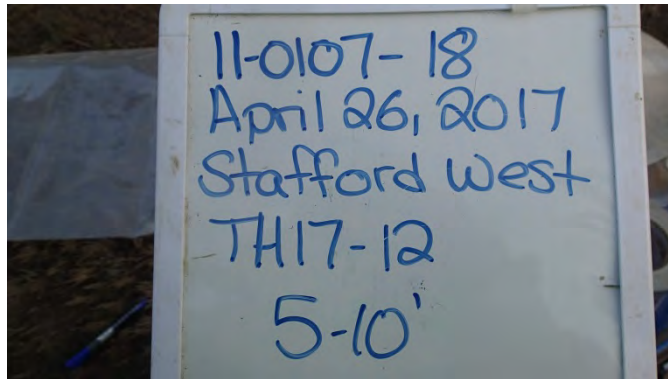 11-0107-18
April 26, 2017
Stafford West
TH17-12
5-10'